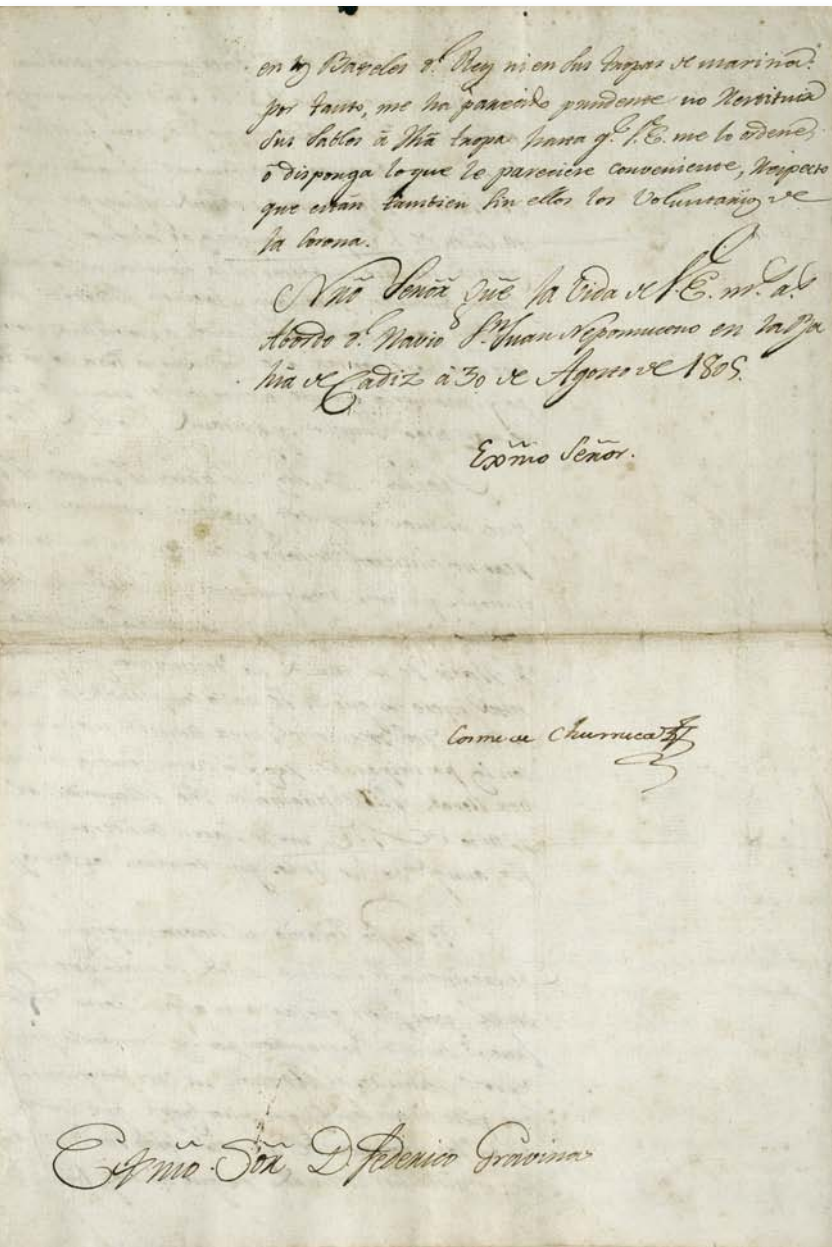 en ls Baxeles dl. Rey ni en sus tropas de marina:
por tanto, me ha parecido prudente no Restituir
sus sables á dha tropa hasta qe. V.E. me lo ordene,
ó disponga lo que le pareciere conveniente, Respecto
que están tambien sin ellos los Voluntarios de
la Corona.
Nrõ Señor gũe la vida de V.E. ms. as.
Abordo dl. Navio Sn. Juan Nepomuceno en la Ba
hia de Cadiz á 30 de Agosto de 1805.
Exm̃o Señor.
Cosme de Churruca
Exm̃o. Sõr D. Federico Gravina